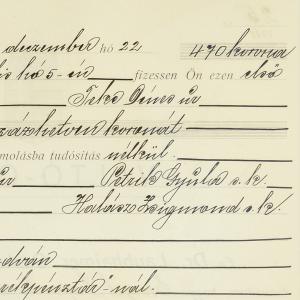 deczember hó 22 470 korona
is hó 5-én fizessen Ön ezen első
Teke Dénes úr
százhetven koronát
molásba tudósítás nélkül.
úr Petrik Gyula s. k.
Halász Zsigmond s. k.
udván
rékpénztár"-nál.